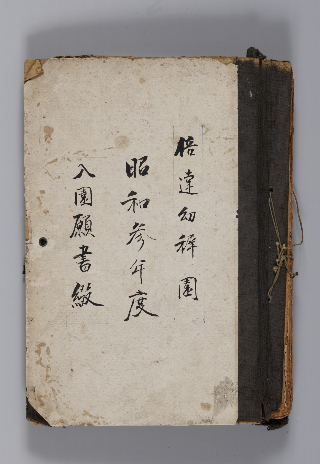 培達幼稚園
昭和参年度
入園願書綴